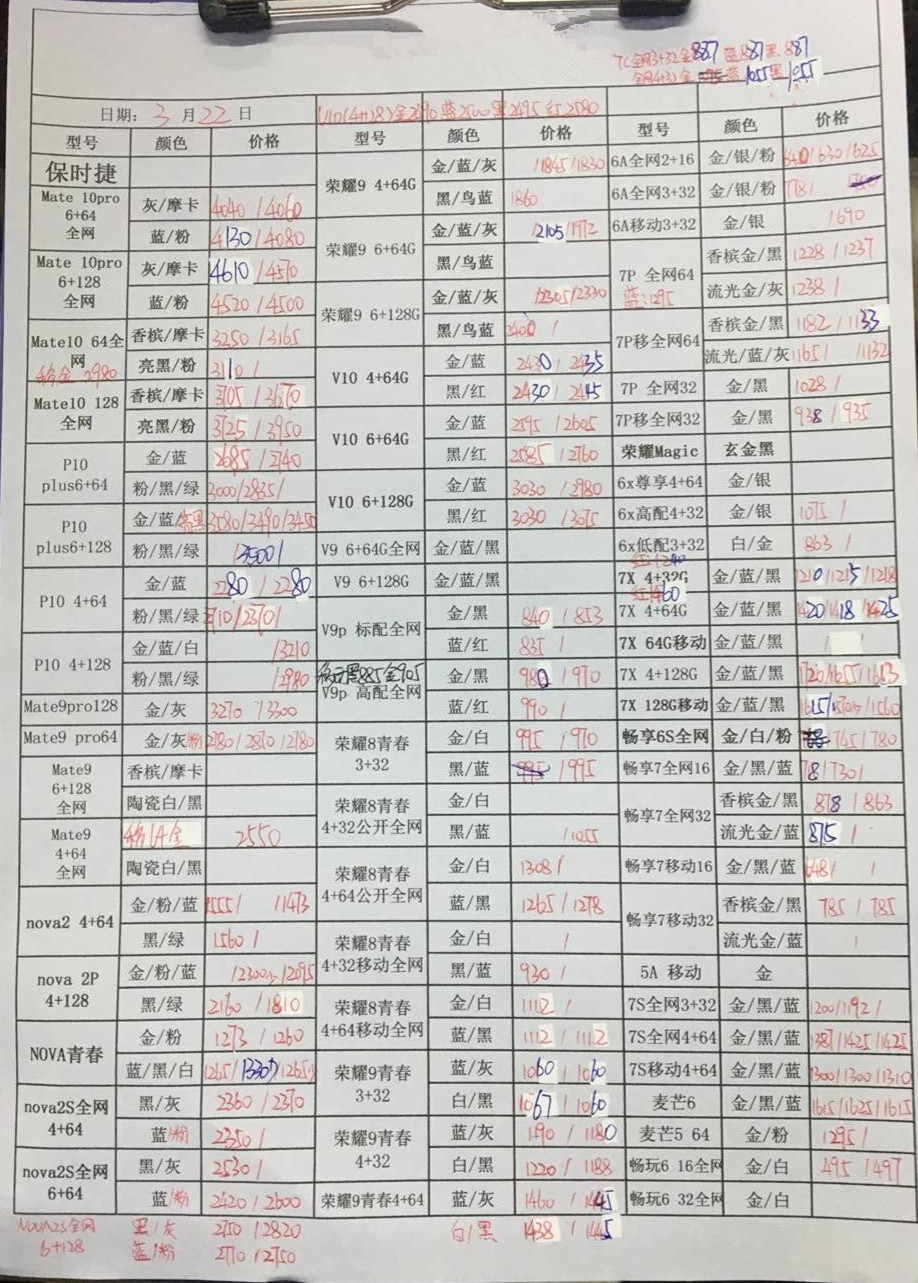 7C全网3+32金887 蓝887黑887
全网4+32金 蓝1055黑1055
日期: 3 月 22 日
V10(4+128)金2490蓝2500黑2495红2580
型号 颜色 价格 型号 颜色 价格 型号 颜色 价格
保时捷
荣耀9 4+64G 金/蓝/灰 /1845/1830
6A全网2+16 金/银/粉
黑/鸟蓝 1860
6A全网3+32 金/银/粉 781
Mate 10pro 6+64 全网 灰/摩卡 4040/4060
蓝/粉 4130/4080
荣耀9 6+64G 金/蓝/灰 /2105/1972
黑/鸟蓝
6A移动3+32 金/银 /690
Mate 10pro 6+128 全网 灰/摩卡 4610/4570
蓝/粉 4520/4500
荣耀9 6+128G 金/蓝/灰 /2305/2330
黑/鸟蓝
7P 全网64 蓝:1295 香槟金/黑 1228/1237
流光金/灰 1238/
Mate10 64全网 移金 2980 香槟/摩卡 3250/3165
亮黑/粉 3110/
V10 4+64G 金/蓝 2430/2435
黑/红 2430/2445
7P移全网64 香槟金/黑 1182/1133
流光/蓝/灰 1165/ /1132
Mate10 128 全网 香槟/摩卡
亮黑/粉
V10 6+64G 金/蓝 2595/2605
黑/红 2585/2760
7P 全网32 金/黑 1028/
7P移全网32 金/黑 938/935
荣耀Magic 玄金黑
P10 plus6+64 金/蓝 2685/2740
粉/黑/绿 3000/2835/
V10 6+128G 金/蓝 3030/2980
黑/红 3030/3075
6x尊享4+64 金/银
6x高配4+32 金/银 1075/
P10 plus6+128 金/蓝/亮黑 3580/3490/3450
粉/黑/绿 /3500/
V9 6+64G全网 金/蓝/黑
6x低配3+32 白/金 863/
P10 4+64 金/蓝 2280/2280
粉/黑/绿 2710/2370/
V9 6+128G 金/蓝/黑
红1240
7X 4+32G 金/蓝/黑 1210/1215/1218
红1460
7X 4+64G 金/蓝/黑 1420/1418/1425
V9p 标配全网 金/黑 840/853
蓝/红 835/
7X 64G移动 金/蓝/黑 /
P10 4+128 金/蓝/白 /3210
粉/黑/绿 /2980
移动黑885金905
V9p 高配全网 金/黑 980/970
蓝/红 990/
7X 4+128G 金/蓝/黑 1720/1655/1653
7X 128G移动 金/蓝/黑
Mate9pro128 金/灰 3270/3300
Mate9 pro64 金/灰粉 2780/2870/2780
荣耀8青春 3+32 金/白 995/970
黑/蓝 /995
畅享6S全网 金/白/粉 745/780
畅享7全网16 金/黑/蓝
Mate9 6+128 全网 香槟/摩卡
陶瓷白/黑
荣耀8青春 4+32公开全网 金/白
黑/蓝 /1055
畅享7全网32 香槟金/黑 878/863
流光金/蓝 875/
Mate9 4+64 全网 2550
陶瓷白/黑
荣耀8青春 4+64公开全网 金/白 1308/
蓝/黑 1265/1278
畅享7移动16 金/黑/蓝 648/ /
nova2 4+64 金/粉/蓝 1555/ /1473
黑/绿 1560/
荣耀8青春 4+32移动全网 金/白 /
黑/蓝 930/
畅享7移动32 香槟金/黑 785/785
流光金/蓝 /
nova 2P 4+128 金/粉/蓝
黑/绿 2160/1810
荣耀8青春 4+64移动全网 金/白 1112/
蓝/黑 1112/1112
5A 移动 金
7S全网3+32 金/黑/蓝 1200/1192/
NOVA青春 金/粉 1273/1260
蓝/黑/白
荣耀9青春 3+32 蓝/灰 1060/1060
白/黑 1067/1060
7S全网4+64 金/黑/蓝 1387/1425/1425
7S移动4+64 金/黑/蓝 1300/1300/1310
nova2S全网 4+64 黑/灰 2360/2370
蓝/粉 2350/
荣耀9青春 4+32 蓝/灰 1190/1180
白/黑 1220/1188
麦芒6 金/黑/蓝 1615/1625/1615
麦芒5 64 金/粉 1295/
nova2S全网 6+64 黑/灰 2530/
蓝/粉 2420/2600
荣耀9青春4+64 蓝/灰 1460/1445
畅玩6 16全网 金/白 495/497
畅玩6 32全网 金/白
NOVA2S全网 黑/灰 2750/2820 白/黑 1438/1445
6+128 蓝/粉 2710/2750